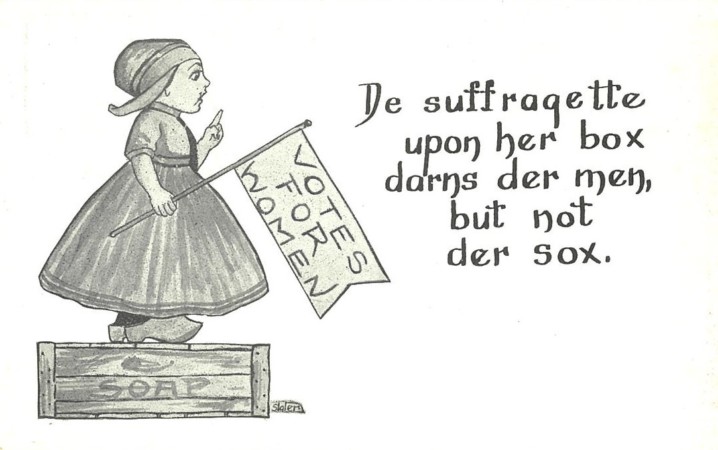 De suffragette
upon her box
darns der men,
but not
der sox.
VOTES
FOR
WOMEN
SOAP
Slaters